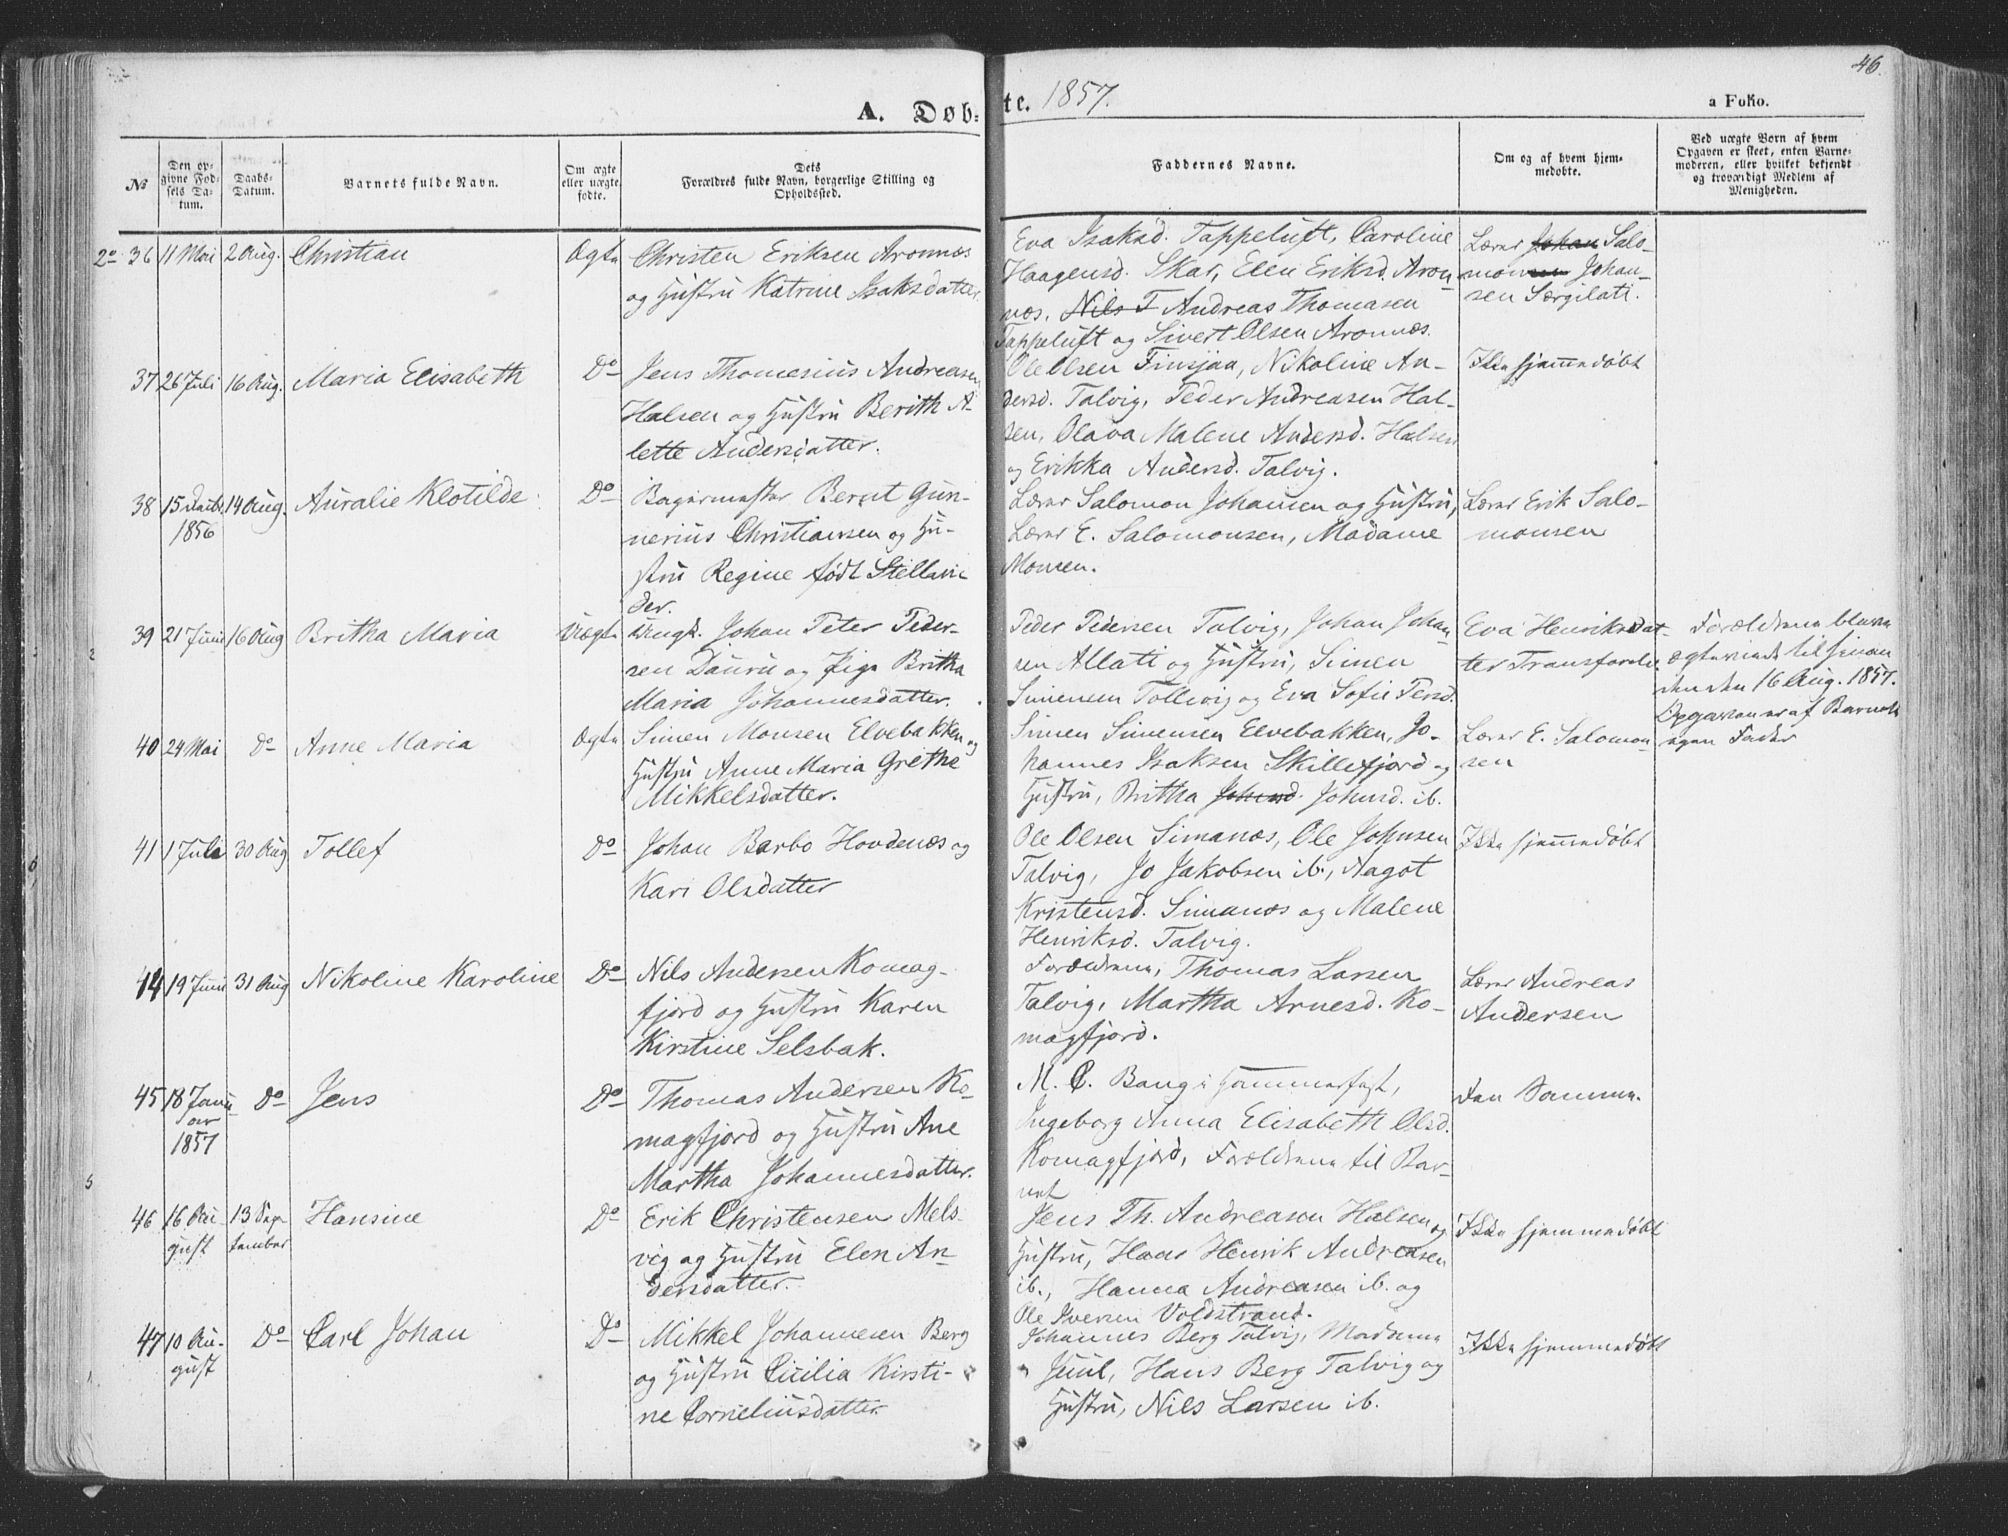 46.
A. Døb-
te. 1857.
a Folio.
No
Den op-
givne Fød-
sels Da-
tum.
Daabs-
Datum.
Barnets fulde Navn.
Om ægte
eller uægte
fødte.
Dets
Forældres fulde Navn, borgerlige Stilling og
Opholdssted.
Faddernes Navne.
Om og af hvem hjem-
medøbte.
Ved uægte Børn af hvem
Opgaven er skeet, enten Barne-
moderen, eller hvilket bekjendt
og troværdigt Medlem af
Menigheden.
2º 36 11 Mai 2 Aug. Christian Ægte
Christen Eriksen Aronnæs
og Hustru Katrine Isaksdatter
Eva Isaksd. Tappeluft, Caroline
Haagensd. Skar, Elen Eriksd. Aron-
næs. Nils T Andreas Thomasen
Tappeluft og Sivert Olsen Aronnæs.
Lærer Johan Salo-
monsen Johan-
sen Særgilati.
37 26 Juli 16 Aug. Maria Elisabeth Do
Jens Thomesius Andreasen
Halsen og Hustru Berith A-
lette Andersdatter.
Ole Olsen Finsjaa, Nikoline An-
dersd. Talvig, Peder Andreasen Hal-
sen, Olava Malene Andersd. Halsen
og Erikka Andersd. Talvig.
Ikke hjemmedøbt
38 15 Decbr 14 Aug. Auralie Klotilde Do
1856
Bagermester Bernt Gun-
nerius Christiansen og Hu-
stru Regine født Stellan-
der.
Lærer Salomon Johansen og Hustru,
Lærer E. Salomonsen, Madame
Monsen.
Lærer Erik Salo-
monsen
39 21 Juni 16 Aug Britha Maria Uægte
Ungk. Johan Peter Peder-
sen Dauru og Pige Britha
Maria Johannesdatter.
Peder Pedersen Talvig, Johan Johan
sen Allati og Hustru, Simen
Simensen Tollevig og Eva Sofie Persd.
Eva Henriksdat-
ter Transfarelv.
Forældrene bleve
ægteviede til hinan
den den 16 Aug. 1857.
Opgaven er af Barnets
egen Fader
40 24 Mai Do Anne Maria Ægte
Simen Monsen Elvebakken og
Hustru Anne Maria Grethe
Mikkelsdatter.
Simen Simensen Elvebakken, Jo-
hannes Isaksen Skillefjord og
Hustru, Britha Johnsd. Johnsd. ib.
Lærer E. Salomon-
sen
41 1 Juli 30 Aug Tollef Do
Johan Barbo Hovdenæs og
Kari Olsdatter
Ole Olsen Simanæs, Ole Johnsen
Talvig, Jo Jakobsen ib., Aagot
Kristensd. Simanæs og Malene
Henriksd. Talvig.
Ikke hjemmedøbt
44 19 Juni 31 Aug Nikoline Karoline Do
Nils Andersen Komag-
fjord og Hustru Karen
Kirstine Selsbak.
Forældrene, Thomas Larsen
Talvig, Martha Arnesd. Ko-
magfjord.
Lærer Andreas
Andersen
45 18 Janu- Do Jens Do
ar
1857
Thomas Andersen Ko-
magfjord og Hustru Ane
Martha Johannesdatter.
M. C. Bang i Hammerfest,
Ingeborg Anna Elisabeth Olsd.
Komagfjord, Forældrene til Bar-
net
Den Samme.
46 16 Au- 13 Sep- Hansine Do
gust tember
Erik Christensen Mels-
vig og Hustru Elen An-
dersdatter.
Jens Th. Andreasen Halsen og
Hustru, Hans Henrik Andreasen
ib., Hanna Andreasen ib. og
Ole Iversen Voldstrand.
Ikke hjemmedøbt
47 10 Au- Do Carl Johan Do
gust
Mikkel Johannesen Berg
og Hustru Cicilia Kirsti-
ne Corneliusdatter.
Johannes Berg Talvig, Madame
Juul, Hans Berg Talvig og
Hustru, Nils Larsen ib.
Ikke hjemmedøbt